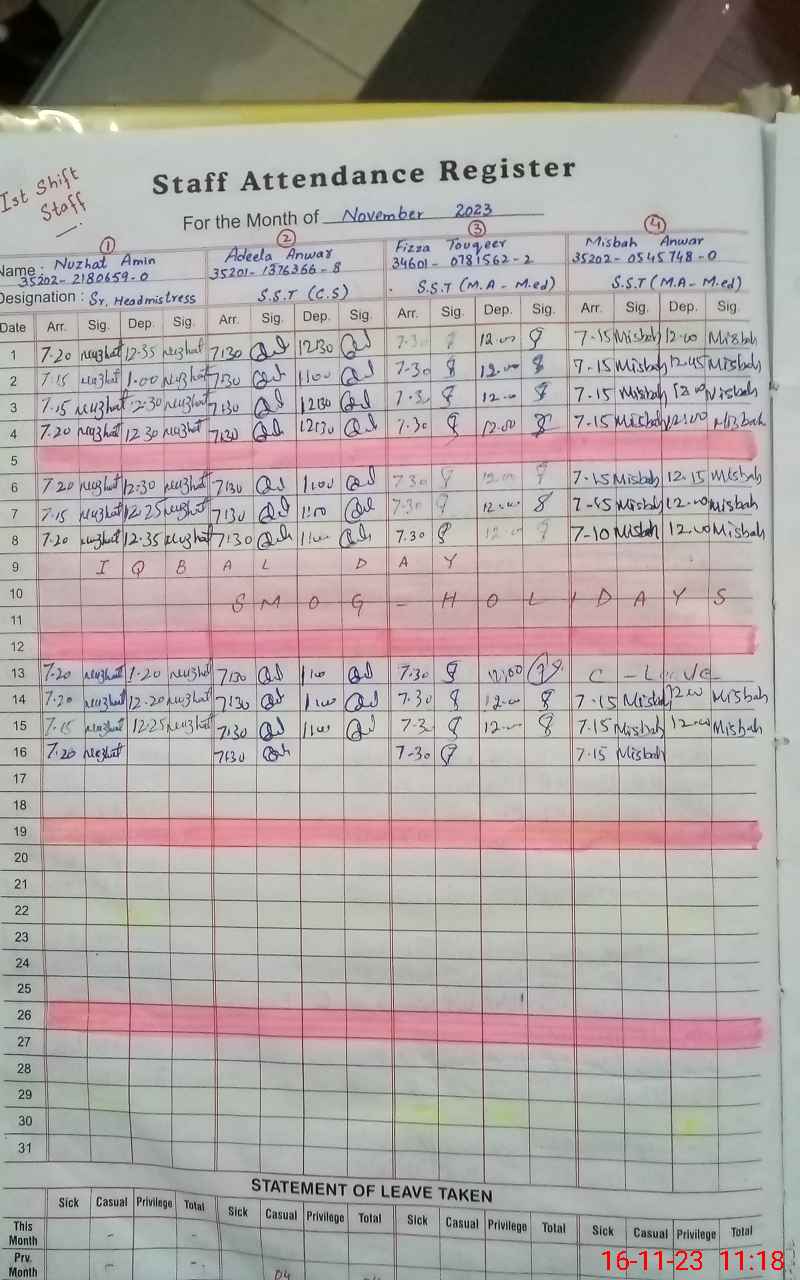 Ist Shift
Staff
Staff Attendance Register
For the Month of November 2023
① ② ③ ④
Name : Nuzhat Amin Adeela Anwar Fizza Touqeer Misbah Anwar
35202-2180659-0 35201-1376366-8 34601-0781562-2 35202-0545748-0
Designation : Sr. Headmistress S.S.T (C.S) S.S.T (M.A - M.ed) S.S.T (M.A - M.ed)
Date Arr. Sig. Dep. Sig. Arr. Sig. Dep. Sig. Arr. Sig. Dep. Sig. Arr. Sig. Dep. Sig.
1 7.20 Nuzhat 12.35 Nuzhat 7:30 12:30 7-30 12.00 7-15 Misbah 12.00 Misbah
2 7.15 Nuzhat 1.00 Nuzhat 7:30 1:00 7-30 12.00 7-15 Misbah 12.45 Misbah
3 7.15 Nuzhat 2.30 Nuzhat 7:30 12:30 7-3 12.00 7-15 Misbah 12.00 Misbah
4 7.20 Nuzhat 12.30 Nuzhat 7:30 12:30 7.30 12.00 7-15 Misbah 12.00 Misbah
5
6 7.20 Nuzhat 12:30 Nuzhat 7:30 1:00 7 30 12.00 7-15 Misbah 12.15 Misbah
7 7.15 Nuzhat 12.25 Nuzhat 7:30 1:00 7-30 12.00 7-15 Misbah 12.00 Misbah
8 7.20 Nuzhat 12.35 Nuzhat 7:30 1:00 7.30 12.00 7-10 Misbah 12.00 Misbah
9 I Q B A L D A Y
10 S M O G - H O L I D A Y S
11
12
13 7.20 Nuzhat 1.20 Nuzhat 7:30 1:00 7.30 12.00 C - Leave
14 7.20 Nuzhat 12.20 Nuzhat 7:30 1:00 7.30 12.00 7-15 Misbah 12.00 Misbah
15 7.15 Nuzhat 12.25 Nuzhat 7:30 1:00 7-3 12.00 7.15 Misbah 12.00 Misbah
16 7.20 Nuzhat 7:30 7-30 7.15 Misbah
17
18
19
20
21
22
23
24
25
26
27
28
29
30
31
STATEMENT OF LEAVE TAKEN
Sick Casual Privilege Total Sick Casual Privilege Total Sick Casual Privilege Total Sick Casual Privilege Total
This
Month - -
Prv.
Month - - 04
16-11-23 11:18